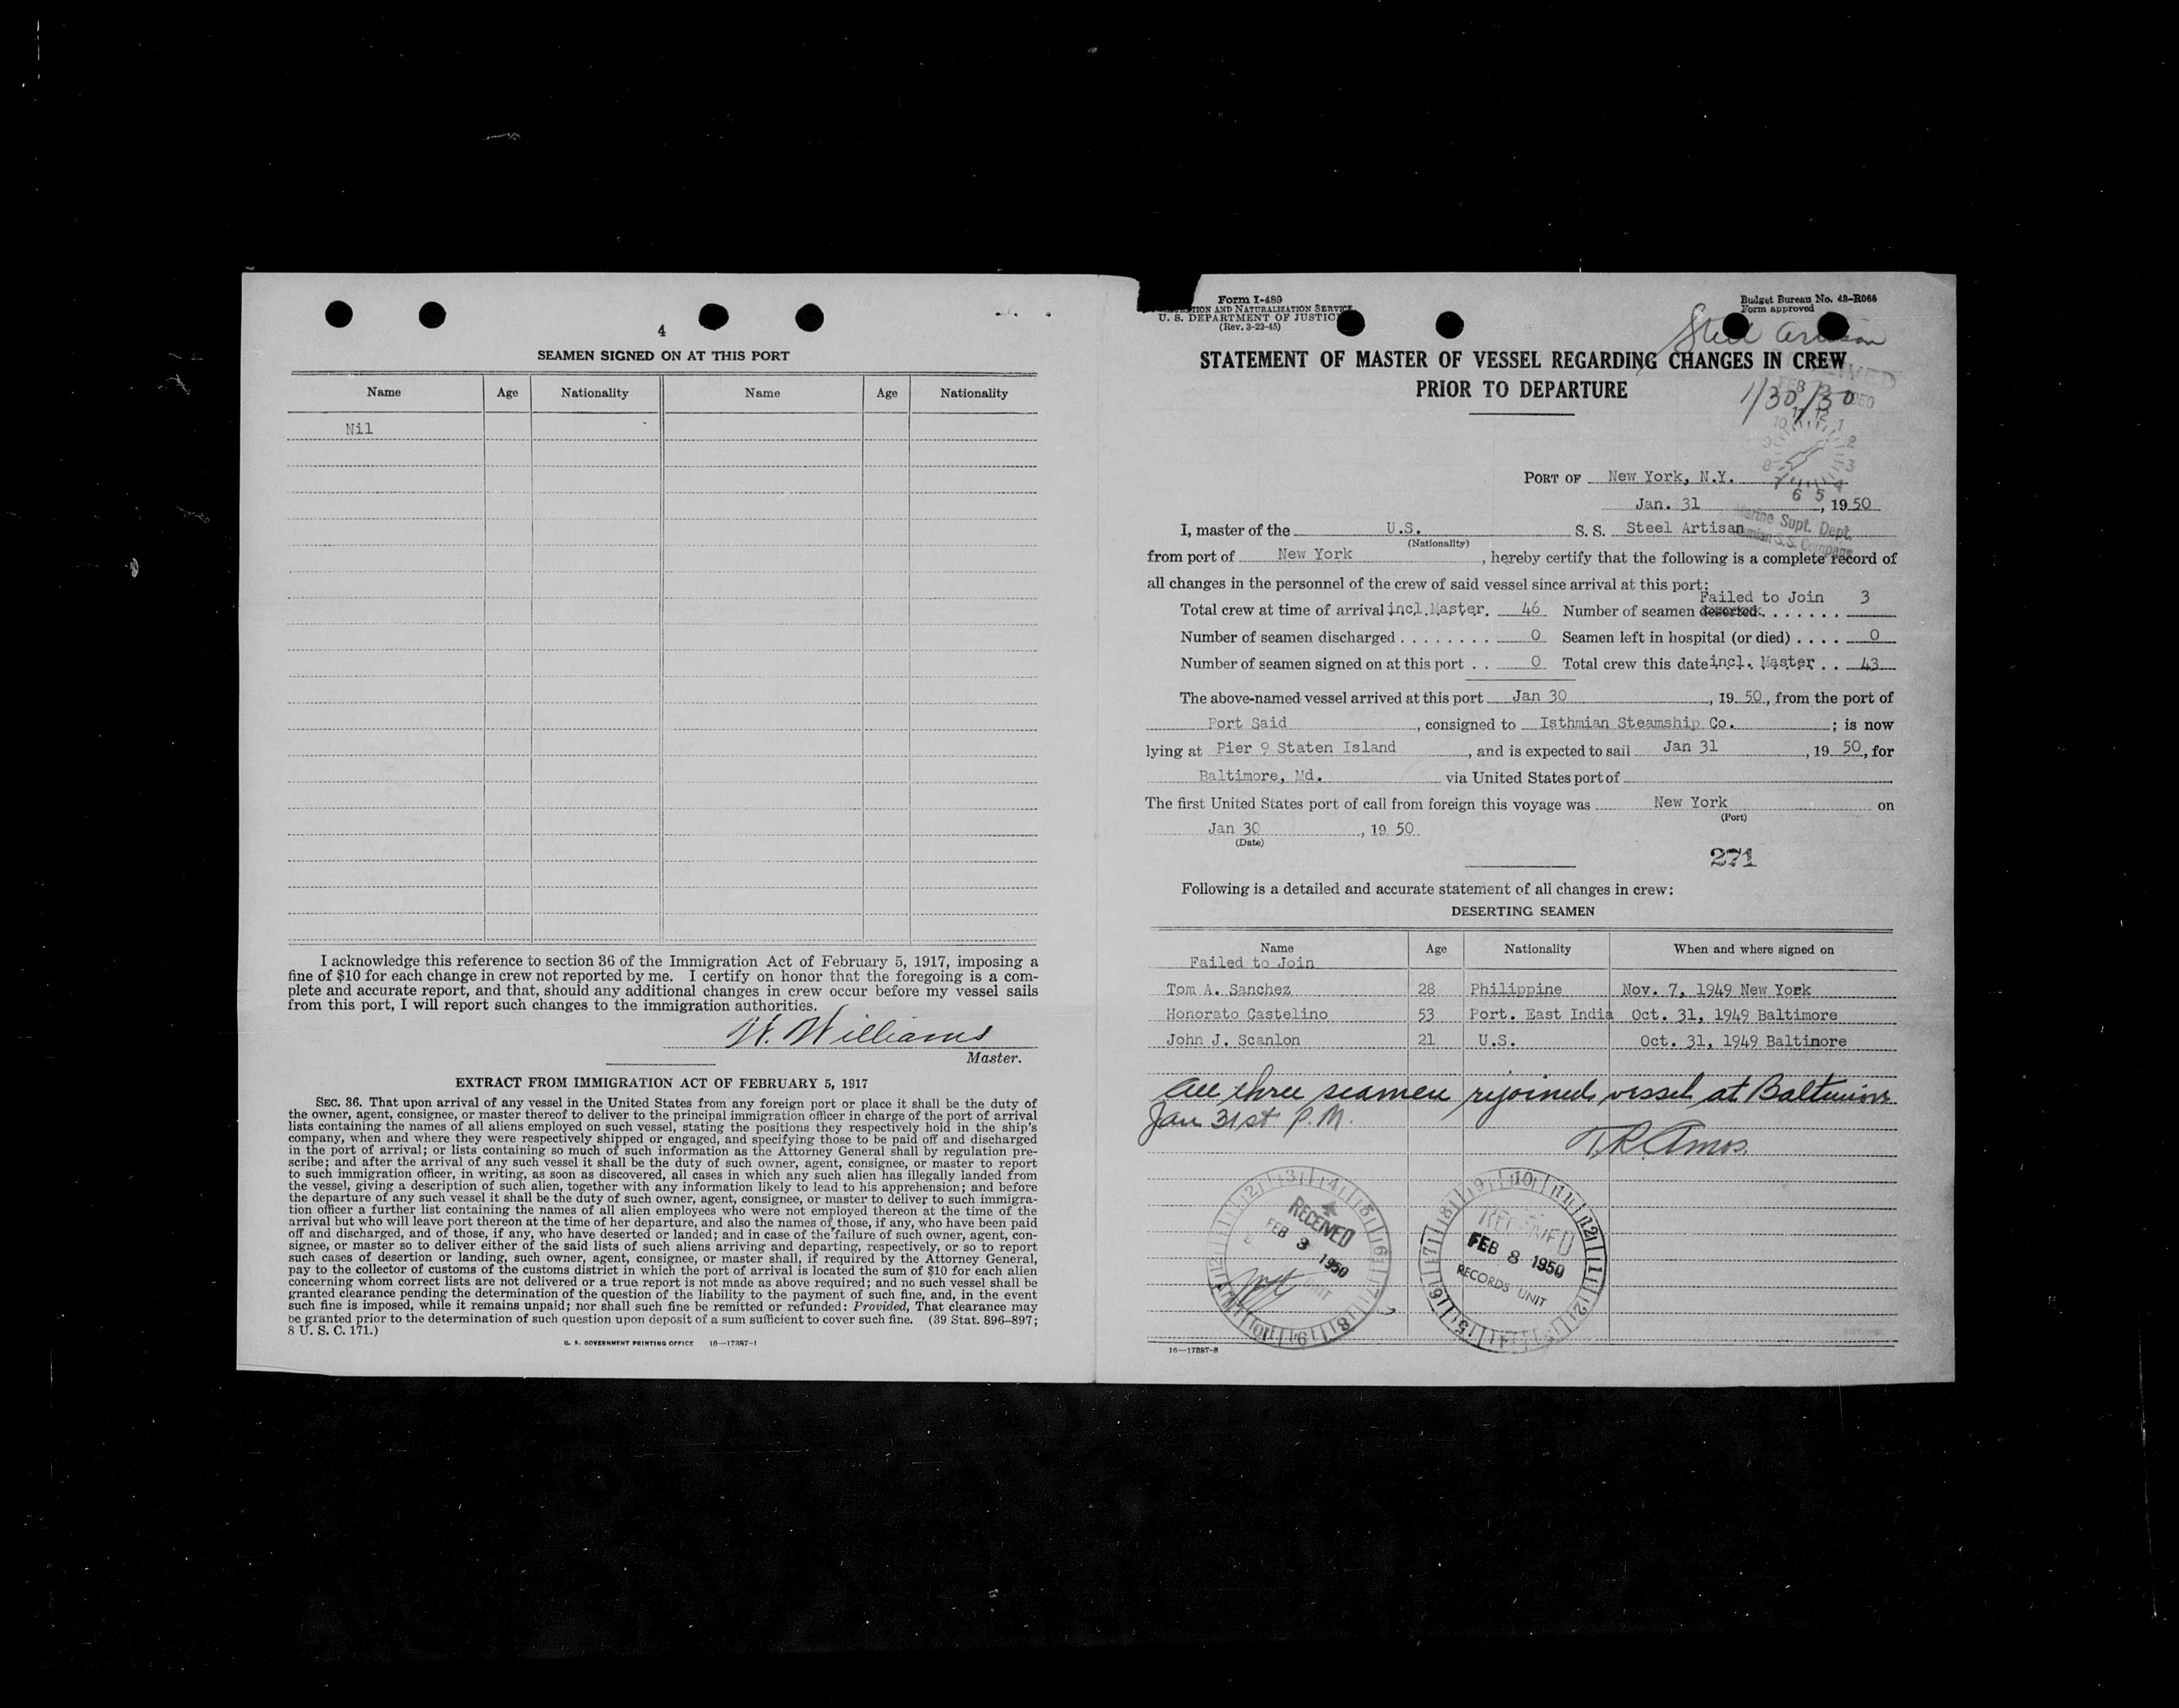 4
SEAMEN SIGNED ON AT THIS PORT
Name Age Nationality Name Age Nationality
Nil
I acknowledge this reference to section 36 of the Immigration Act of February 5, 1917, imposing a
fine of $10 for each change in crew not reported by me. I certify on honor that the foregoing is a com-
plete and accurate report, and that, should any additional changes in crew occur before my vessel sails
from this port, I will report such changes to the immigration authorities.
W. Williams
Master.
EXTRACT FROM IMMIGRATION ACT OF FEBRUARY 5, 1917
SEC. 36. That upon arrival of any vessel in the United States from any foreign port or place it shall be the duty of
the owner, agent, consignee, or master thereof to deliver to the principal immigration officer in charge of the port of arrival
lists containing the names of all aliens employed on such vessel, stating the positions they respectively hold in the ship's
company, when and where they were respectively shipped or engaged, and specifying those to be paid off and discharged
in the port of arrival; or lists containing so much of such information as the Attorney General shall by regulation pre-
scribe; and after the arrival of any such vessel it shall be the duty of such owner, agent, consignee, or master to report
to such immigration officer, in writing, as soon as discovered, all cases in which any such alien has illegally landed from
the vessel, giving a description of such alien, together with any information likely to lead to his apprehension; and before
the departure of any such vessel it shall be the duty of such owner, agent, consignee, or master to deliver to such immigra-
tion officer a further list containing the names of all alien employees who were not employed thereon at the time of the
arrival but who will leave port thereon at the time of her departure, and also the names of those, if any, who have been paid
off and discharged, and of those, if any, who have deserted or landed; and in case of the failure of such owner, agent, con-
signee, or master so to deliver either of the said lists of such aliens arriving and departing, respectively, or so to report
such cases of desertion or landing, such owner, agent, consignee, or master shall, if required by the Attorney General,
pay to the collector of customs of the customs district in which the port of arrival is located the sum of $10 for each alien
concerning whom correct lists are not delivered or a true report is not made as above required; and no such vessel shall be
granted clearance pending the determination of the question of the liability to the payment of such fine, and, in the event
such fine is imposed, while it remains unpaid; nor shall such fine be remitted or refunded: Provided, That clearance may
be granted prior to the determination of such question upon deposit of a sum sufficient to cover such fine. (39 Stat. 896–897;
8 U. S. C. 171.)
U. S. GOVERNMENT PRINTING OFFICE 16—17387-1
Form I-489
TION AND NATURALIZATION SERVICE
U. S. DEPARTMENT OF JUSTIC
(Rev. 3-22-45)
Budget Bureau No. 43-R066
Form approved
Steel Artisan
STATEMENT OF MASTER OF VESSEL REGARDING CHANGES IN CREW
PRIOR TO DEPARTURE
1/30/50
PORT OF New York, N.Y.
Jan. 31, 1950
Marine Supt. Dept.
Isthmian S.S. Company
I, master of the U.S. S. S. Steel Artisan
(Nationality)
from port of New York, hereby certify that the following is a complete record of
all changes in the personnel of the crew of said vessel since arrival at this port:
Failed to Join 3
Total crew at time of arrival incl. Master. 46 Number of seamen deserted. . . . . . .
Number of seamen discharged . . . . . . . . 0 Seamen left in hospital (or died) . . . . 0
Number of seamen signed on at this port . . 0 Total crew this date incl. Master . . 43
The above-named vessel arrived at this port Jan 30, 1950, from the port of
Port Said, consigned to Isthmian Steamship Co.; is now
lying at Pier 9 Staten Island, and is expected to sail Jan 31, 1950, for
Baltimore, Md. via United States port of
The first United States port of call from foreign this voyage was New York on
(Port)
Jan 30, 1950
(Date)
271
Following is a detailed and accurate statement of all changes in crew:
DESERTING SEAMEN
Name Age Nationality When and where signed on
Failed to Join
Tom A. Sanchez 28 Philippine Nov. 7, 1949 New York
Honorato Castelino 53 Port. East India Oct. 31, 1949 Baltimore
John J. Scanlon 21 U.S. Oct. 31, 1949 Baltimore
All three seamen rejoined vessel at Baltimore
Jan 31st P.M.
T.R. Amos.
RECEIVED
FEB 3 1950
UNIT
RECEIVED
FEB 8 1950
RECORDS UNIT
16—17387-2